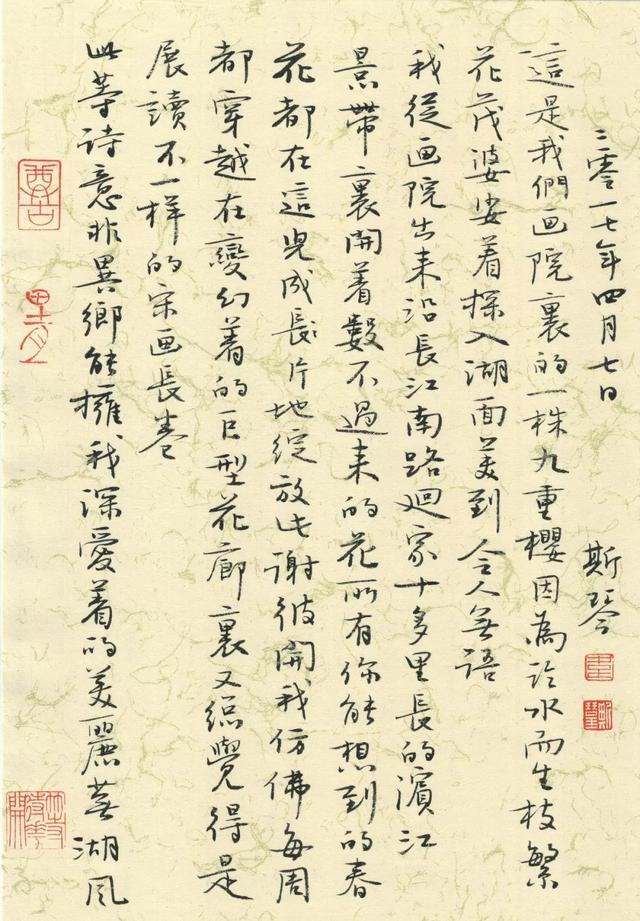 二零一七年四月七日 斯琴
這是我們画院裏的一株九重櫻因為臨水而生枝繁
花茂婆娑着探入湖面美到令人無語
我從画院出来沿長江南路迴家十多里長的濱江
景帶裏開着數不過来的花所有你能想到的春
花都在這兒成長片地綻放此謝彼開我仿佛每周
都穿越在變幻着的巨型花廊裏又總覺得是
展讀不一样的宋画長卷
此等诗意非異鄉能擁我深愛着的美麗蕪湖風